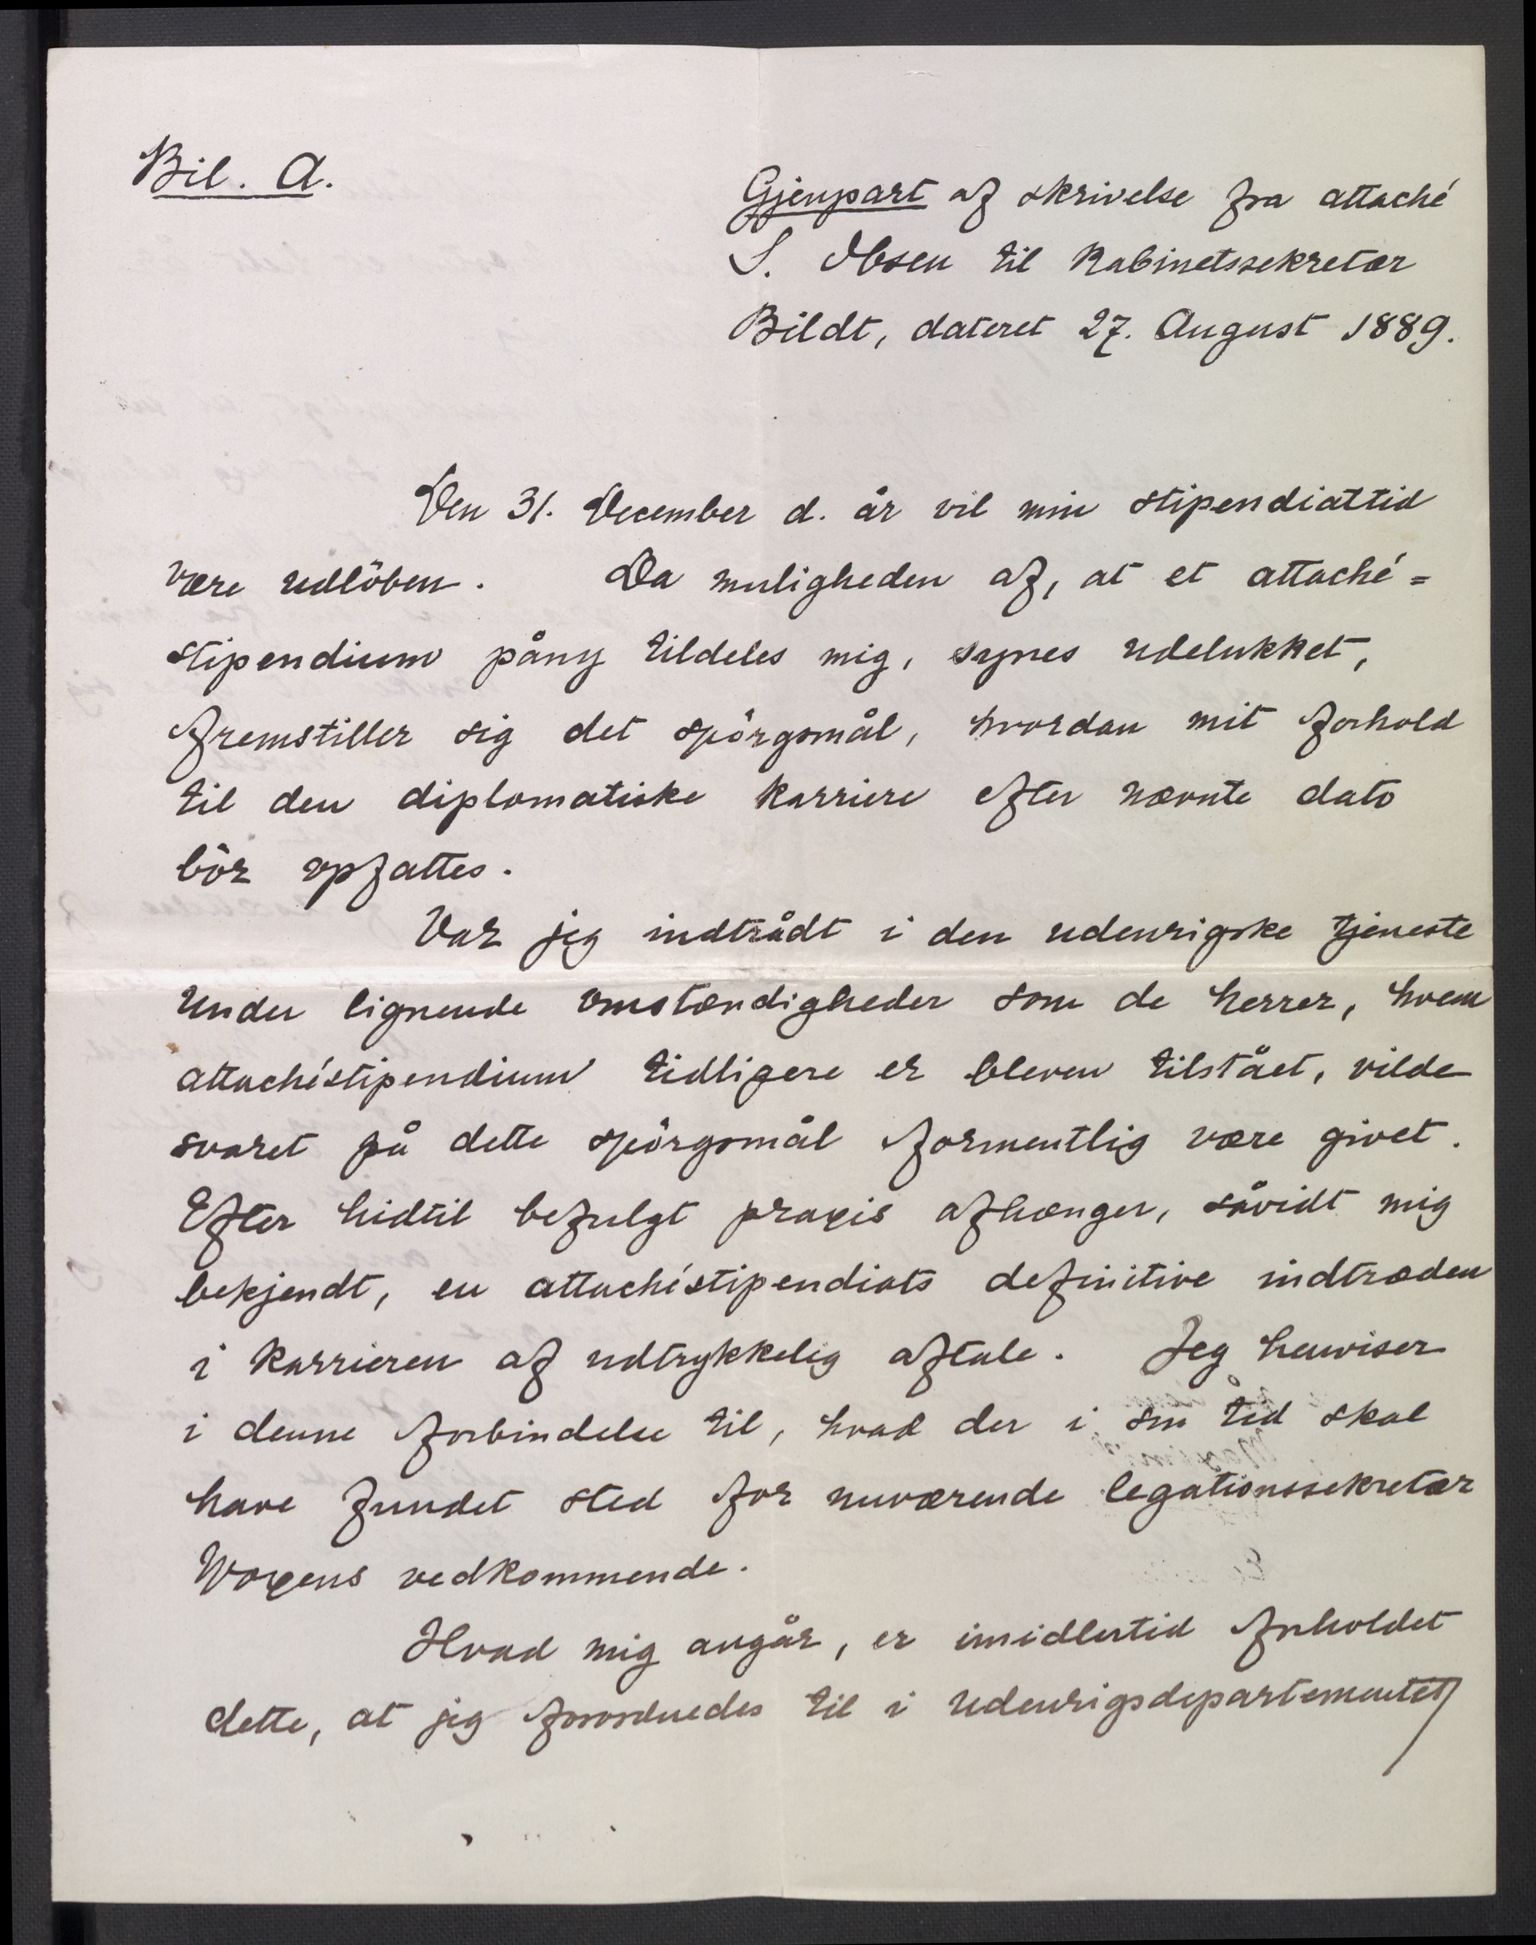 Bil. A.
Gjenpart af skrivelse fra attaché
S. Ibsen til kabinetssekretær
Bildt, dateret 27. August 1889.
Den 31. December d. år vil min stipendiattid
være udlöben. Da muligheden af, at et attaché=
stipendium påny tildeles mig, synes udelukket,
fremstiller sig det spörgsmål, hvordan mit forhold
til den diplomatiske karriere efter nævnte dato
bör opfattes.
Var jeg indtrådt i den udenrigske tjeneste
under lignende omstændigheder som de herrer, hvem
attachéstipendium tidligere er bleven tilstået, vilde
svaret på dette spörgsmål formentlig være givet.
Efter hidtil befulgt praxis afhænger, såvidt mig
bekjendt, en attachéstipendiats definitive indtræden
i karrieren af udtrykkelig aftale. Jeg henviser
i denne forbindelse til, hvad der i sin tid skal
have fundet sted for nuværende legationssekretær
Woxens vedkommende.
Hvad mig angår, er imidlertid forholdet
dette, at jeg forordnedes til i udenrigsdepartementet